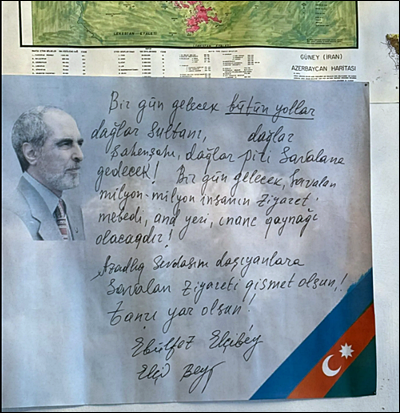 GÜNEY (IRAN)
AZERBAYCAN HARİTASI
Bir gün gelecek bütün yollar
dağlar sultanı, dağlar
şahenşahı, dağlar piri Savalana
gedecek! Bir gün gelecek, Savalan
milyon-milyon insanın ziyaret
mebedi, and yeri, inanc qaynağı
olacaqdır!
Azadlıq Sevdasını daşıyanlara
Savalan ziyareti qismet olsun!
Tanrı yar olsun!
Ebülfez Elçibey
Elçi Bey